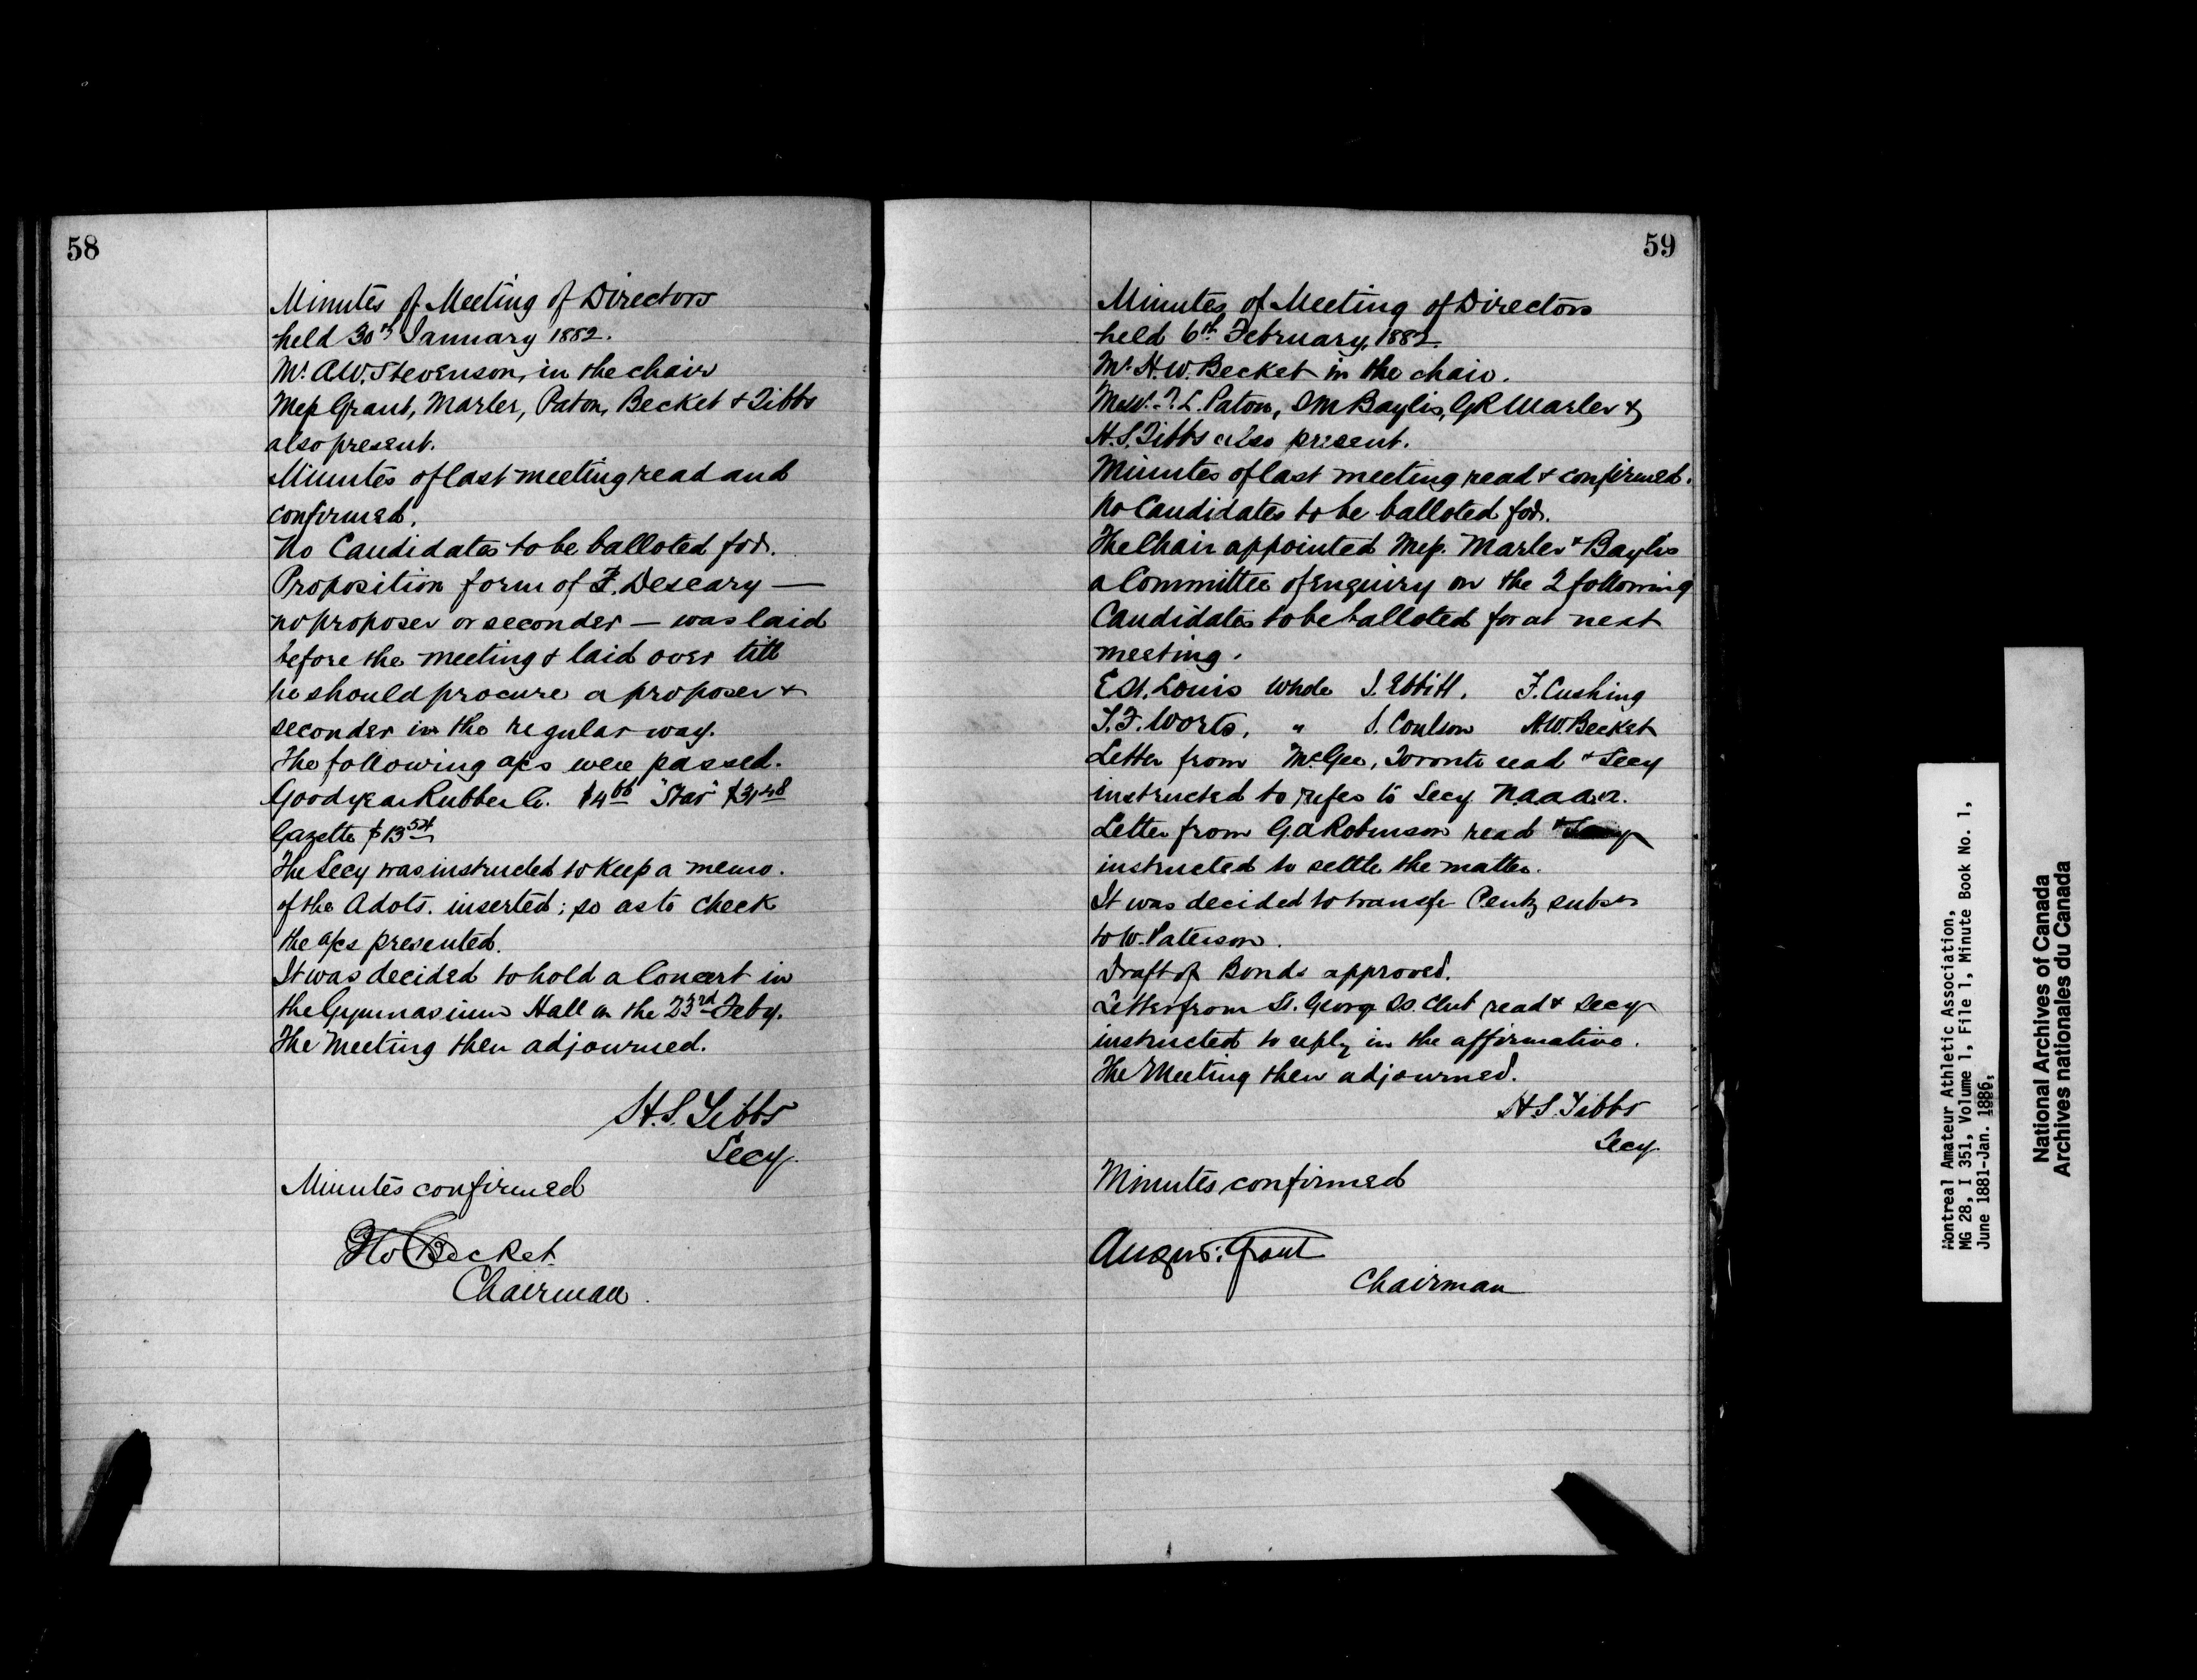 58
Minutes of Meeting of Directors
held 30th January 1882.
Mr. A.W. Stevenson, in the chair
Mess Grant, Marler, Paton, Becket & Tibbs
also present.
Minutes of last meeting read and
confirmed.
No Candidates to be balloted for.
Proposition form of F. Deseary —
no proposer or seconder — was laid
before the meeting & laid over till
he should procure a proposer &
seconder in the regular way.
The following a/cs were passed.
Goodyear Rubber Co. $4 66 "Star" $31 48
Gazette $13 54
The Secy was instructed to keep a memo.
of the Advts. inserted; so as to check
the a/cs presented.
It was decided to hold a Concert in
the Gymnasium Hall on the 23rd Feby.
The Meeting then adjourned.
H.S. Tibbs
Secy.
Minutes confirmed
HW Becket
Chairman.
59
Minutes of Meeting of Directors
held 6th February, 1882.
Mr. H.W. Becket in the chair.
Messrs. T.L. Paton, J M Baylis, G R Marler &
H.S. Tibbs also present.
Minutes of last meeting read & confirmed.
No Candidates to be balloted for.
The Chair appointed Mess. Marler & Baylis
a Committee of Enquiry on the 2 following
Candidates to be balloted for at next
meeting.
E.A. Louis Whole J. Ebbitt. F. Cushing
T.F. Worts, " J. Coulson H.W. Becket
Letter from McGee, Toronto read & Secy
instructed to refer to Secy N.a.a.a.a.
Letter from G.A Robinson read & Secy
instructed to settle the matter.
It was decided to transfer Pentz subsn
to W. Paterson.
Draft of Bonds approved.
Letter from St. George SS. Club read & Secy
instructed to reply in the affirmative.
The Meeting then adjourned.
H.S. Tibbs
Secy.
Minutes confirmed
Angus Grant
Chairman
Montreal Amateur Athletic Association,
MG 28, I 351, Volume 1, File 1, Minute Book No. 1,
June 1881-Jan. 1886,
National Archives of Canada
Archives nationales du Canada